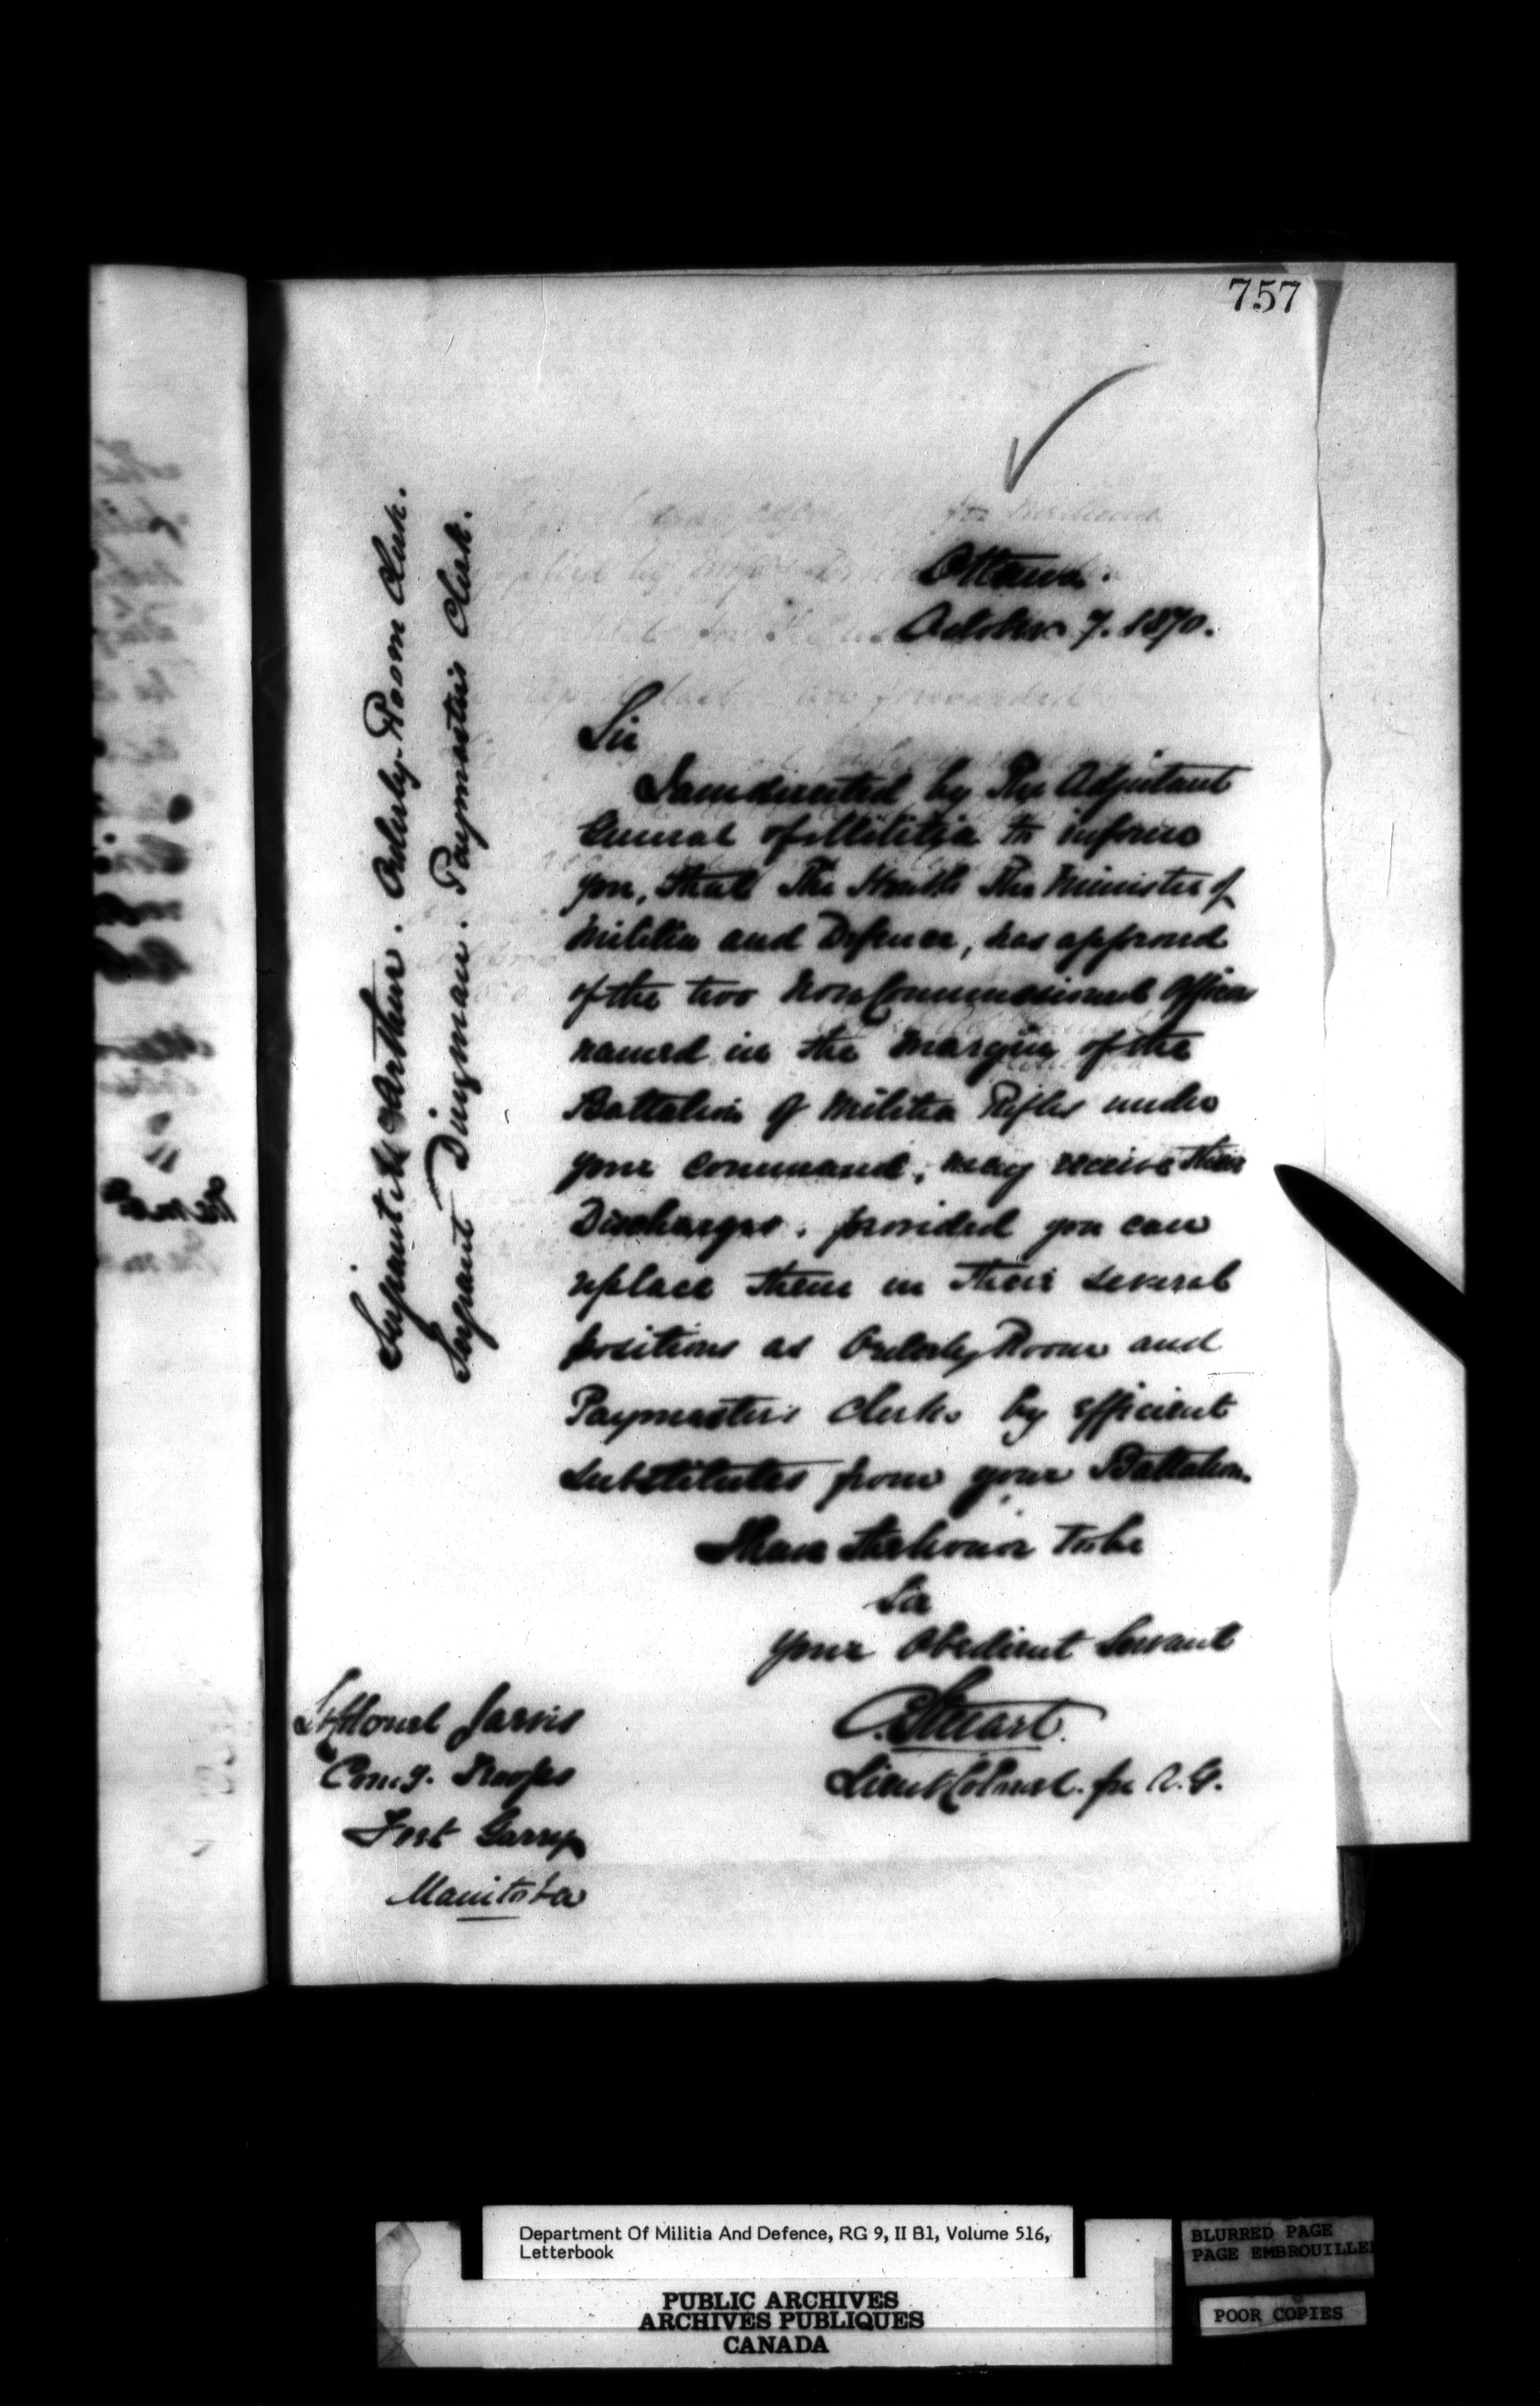 757
Ottawa.
October 7. 1870.
Sergeant McArthur. Orderly-Room Clerk.
Sergeant Dingman. Paymaster's Clerk.
Sir
I am directed by The Adjutant
General of Militia to inform
you, that The Honble The Minister of
Militia and Defence, has approved
of the two Non Commissioned Officers
named in the margin of the
Battalion of Militia Rifles under
your command, may receive their
Discharges. provided you can
replace them in their several
positions as Orderly Room and
Paymasters Clerks by efficient
substitutes from your Battalion.
I have the honor to be
Sir
Your Obedient Servant
C. Stuart.
Lieut Colonel. for A. G.
Lt Colonel Jarvis
Comg. Troops
Fort Garry
Manitoba
Department Of Militia And Defence, RG 9, II B1, Volume 516,
Letterbook
PUBLIC ARCHIVES
ARCHIVES PUBLIQUES
CANADA
BLURRED PAGE
PAGE EMBROUILLEE
POOR COPIES